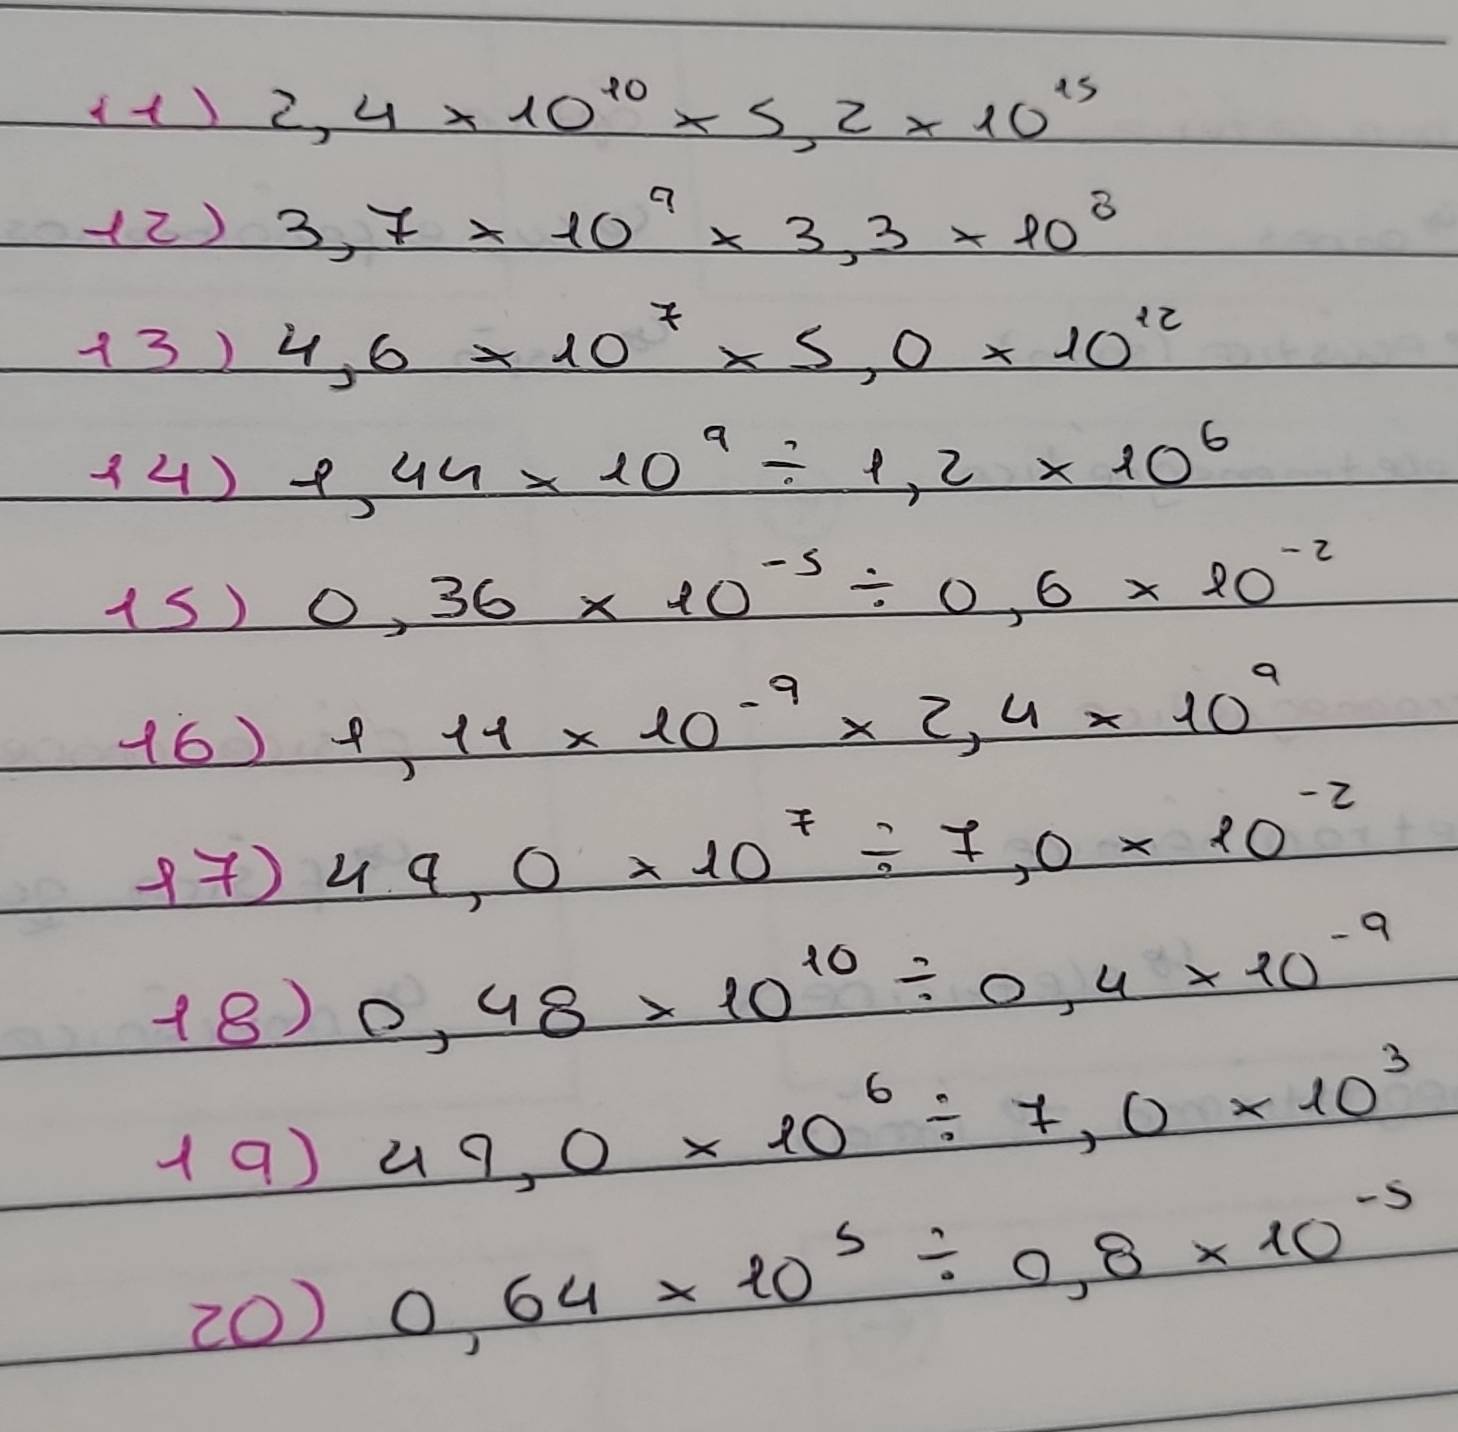 11) 2,4 × 10¹⁰ × 5,2 × 10¹⁵
12) 3,7 × 10⁹ × 3,3 × 10⁸
13) 4,6 × 10⁷ × 5,0 × 10¹²
14) 1,44 × 10⁹ ÷ 1,2 × 10⁶
15) 0,36 × 10⁻⁵ ÷ 0,6 × 10⁻²
16) 1,11 × 10⁻⁹ × 2,4 × 10⁹
17) 49,0 × 10⁷ ÷ 7,0 × 10⁻²
18) 0,48 × 10¹⁰ ÷ 0,4 × 10⁻⁹
19) 49,0 × 10⁶ ÷ 7,0 × 10³
20) 0,64 × 10⁵ ÷ 0,8 × 10⁻⁵